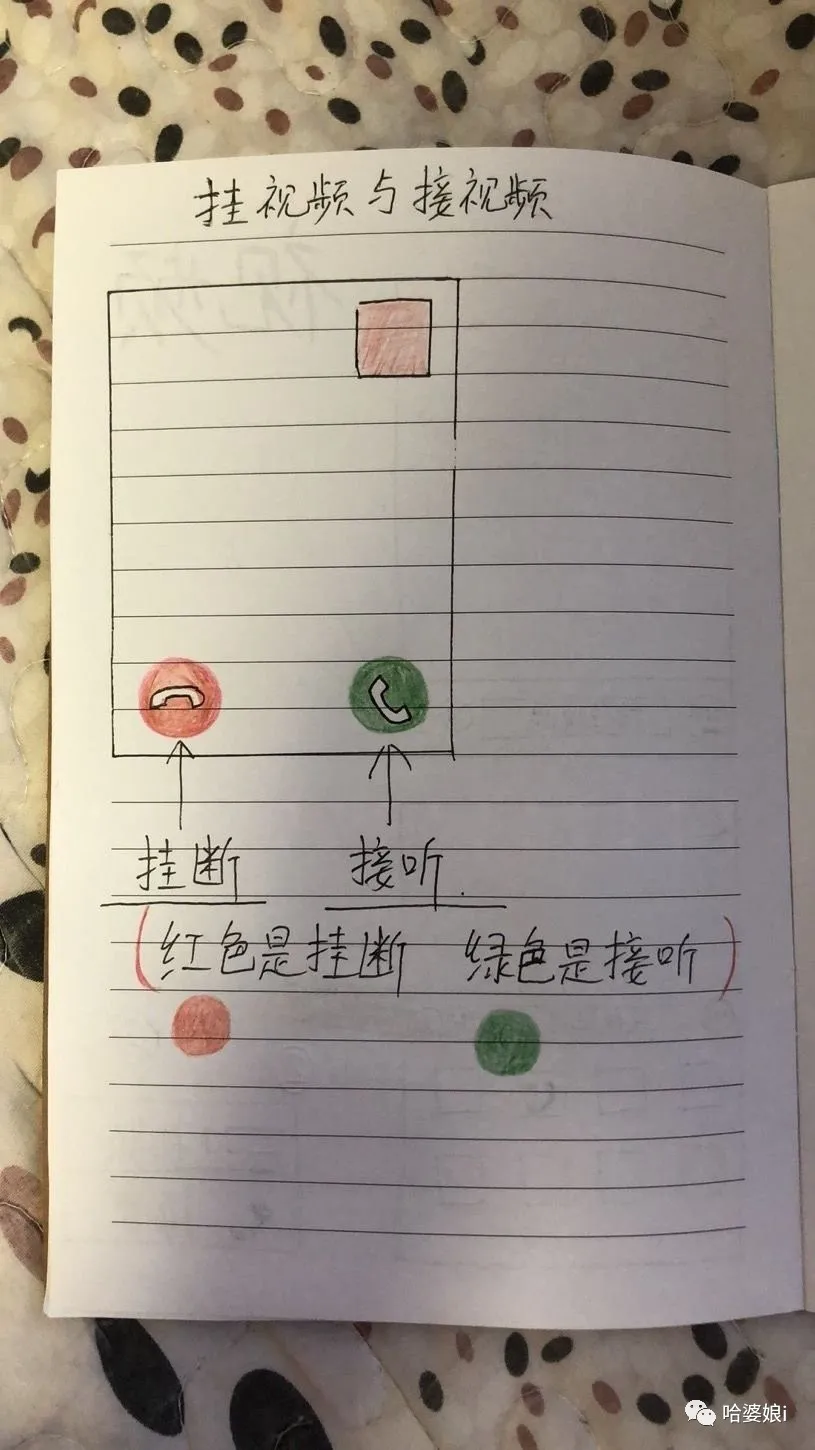 挂视频与接视频
挂断 接听.
(红色是挂断 绿色是接听)
哈婆娘i